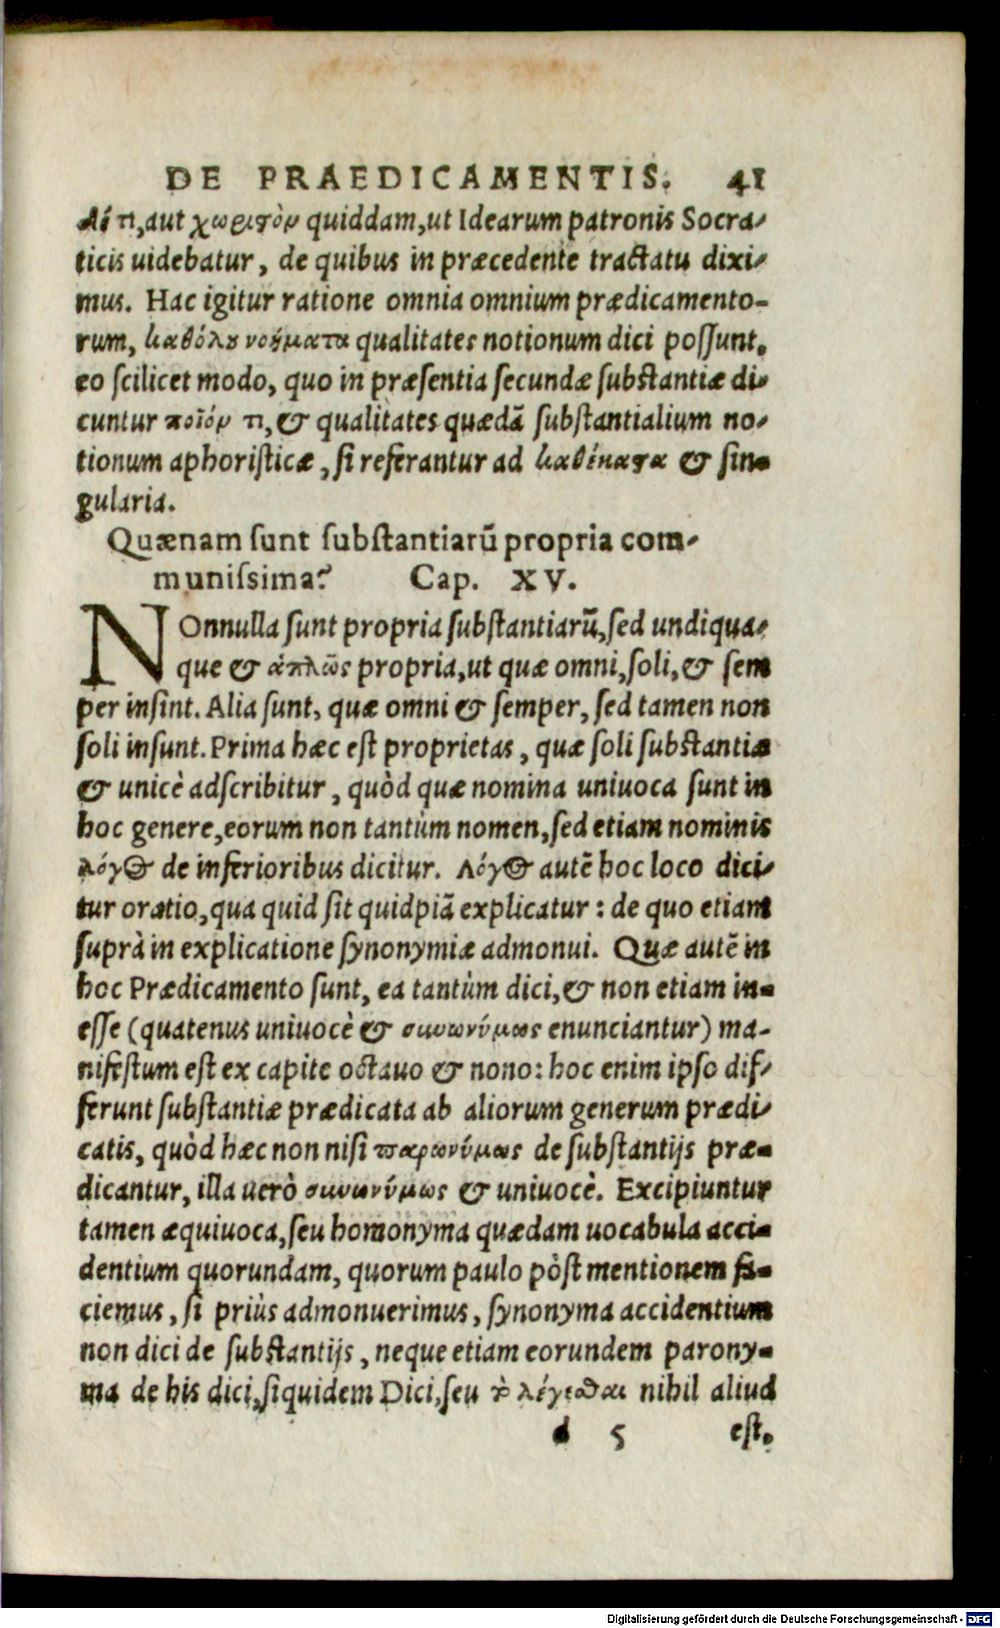 DE PRAEDICAMENTIS. 41
δέ τι, aut χωριστὸν quiddam, ut Idearum patronis Socra-
ticis uidebatur, de quibus in præcedente tractatu dixi-
mus. Hac igitur ratione omnia omnium prædicamento-
rum, καθόλου νοήματα qualitates notionum dici possunt.
eo scilicet modo, quo in præsentia secundæ substantiæ di-
cuntur ποῖόν τι, & qualitates quædã substantialium no-
tionum aphoristicæ, si referantur ad καθέκαστα & sin-
gularia.
Quænam sunt substantiarũ propria com-
munissima? Cap. XV.
NOnnulla sunt propria substantiarũ, sed undiqua-
que & ἁπλῶς propria, ut quæ omni, soli, & sem
per insint. Alia sunt, quæ omni & semper, sed tamen non
soli insunt. Prima hæc est proprietas, quæ soli substantiæ
& unicè adscribitur, quòd quæ nomina uniuoca sunt in
hoc genere, eorum non tantùm nomen, sed etiam nominis
λόγος de inferioribus dicitur. Λόγος autẽ hoc loco dici-
tur oratio, qua quid sit quidpiã explicatur: de quo etiam
suprà in explicatione synonymiæ admonui. Quæ autẽ in
hoc Prædicamento sunt, ea tantùm dici, & non etiam in-
esse (quatenus uniuocè & συνωνύμως enunciantur) ma-
nifestum est ex capite octauo & nono: hoc enim ipso dif-
ferunt substantiæ prædicata ab aliorum generum prædi-
catis, quòd hæc non nisi παρωνύμως de substantijs præ-
dicantur, illa uerò συνωνύμως & uniuocè. Excipiuntur
tamen æquiuoca, seu homonyma quædam uocabula acci-
dentium quorundam, quorum paulo pòst mentionem fa-
ciemus, si priùs admonuerimus, synonyma accidentium
non dici de substantijs, neque etiam eorundem parony-
ma de his dici, siquidem Dici, seu τὸ λέγεσθαι nihil aliud
d 5 est.
Digitalisierung gefördert durch die Deutsche Forschungsgemeinschaft - DFG